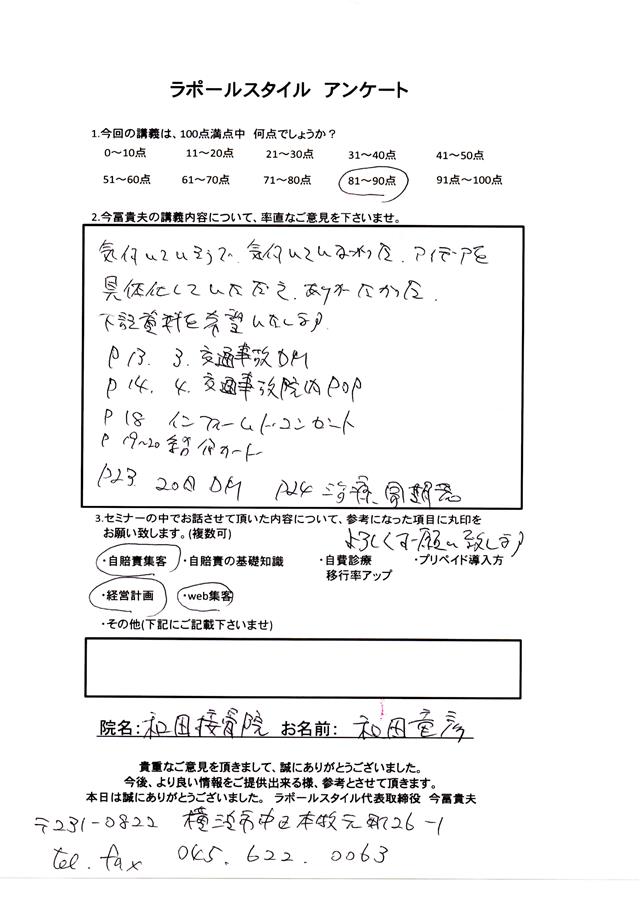 ラポールスタイル アンケート
1.今回の講義は、100点満点中 何点でしょうか?
0～10点 11～20点 21～30点 31～40点 41～50点
51～60点 61～70点 71～80点 81～90点 91点～100点
2.今冨貴夫の講義内容について、率直なご意見を下さいませ。
気付いていそうで、気付いていなかった、アイデアを
具体化していただき、ありがたかった。
下記資料を希望いたします
P13. 3. 交通事故DM
P14. 4. 交通事故院内POP
P18 インフォームド・コンセント
P19～20 紹介カード
P23. 20日DM P24 治療、周期表
3.セミナーの中でお話させて頂いた内容について、参考になった項目に丸印を
お願い致します。(複数可)
よろしくお願い致します
・自賠責集客 ・自賠責の基礎知識 ・自費診療 ・プリペイド導入方
移行率アップ
・経営計画 ・web集客
・その他(下記にご記載下さいませ)
院名:和田接骨院 お名前: 和田竜彦
貴重なご意見を頂きまして、誠にありがとうございました。
今後、より良い情報をご提供出来る様、参考とさせて頂きます。
本日は誠にありがとうございました。 ラポールスタイル代表取締役 今冨貴夫
〒231-0822 横浜市中区本牧元町26-1
tel.fax 045.622.0063